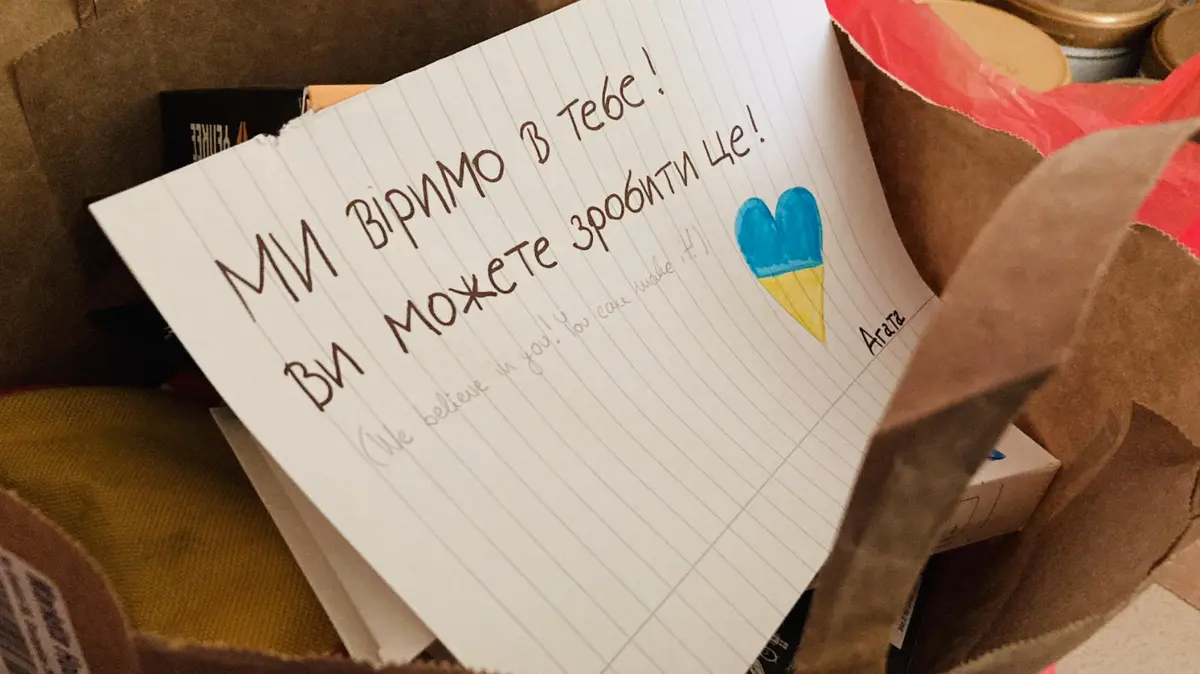 Ми віримо в тебе!
Ви можете зробити це!
(We believe in you! You can make it!)
Агата